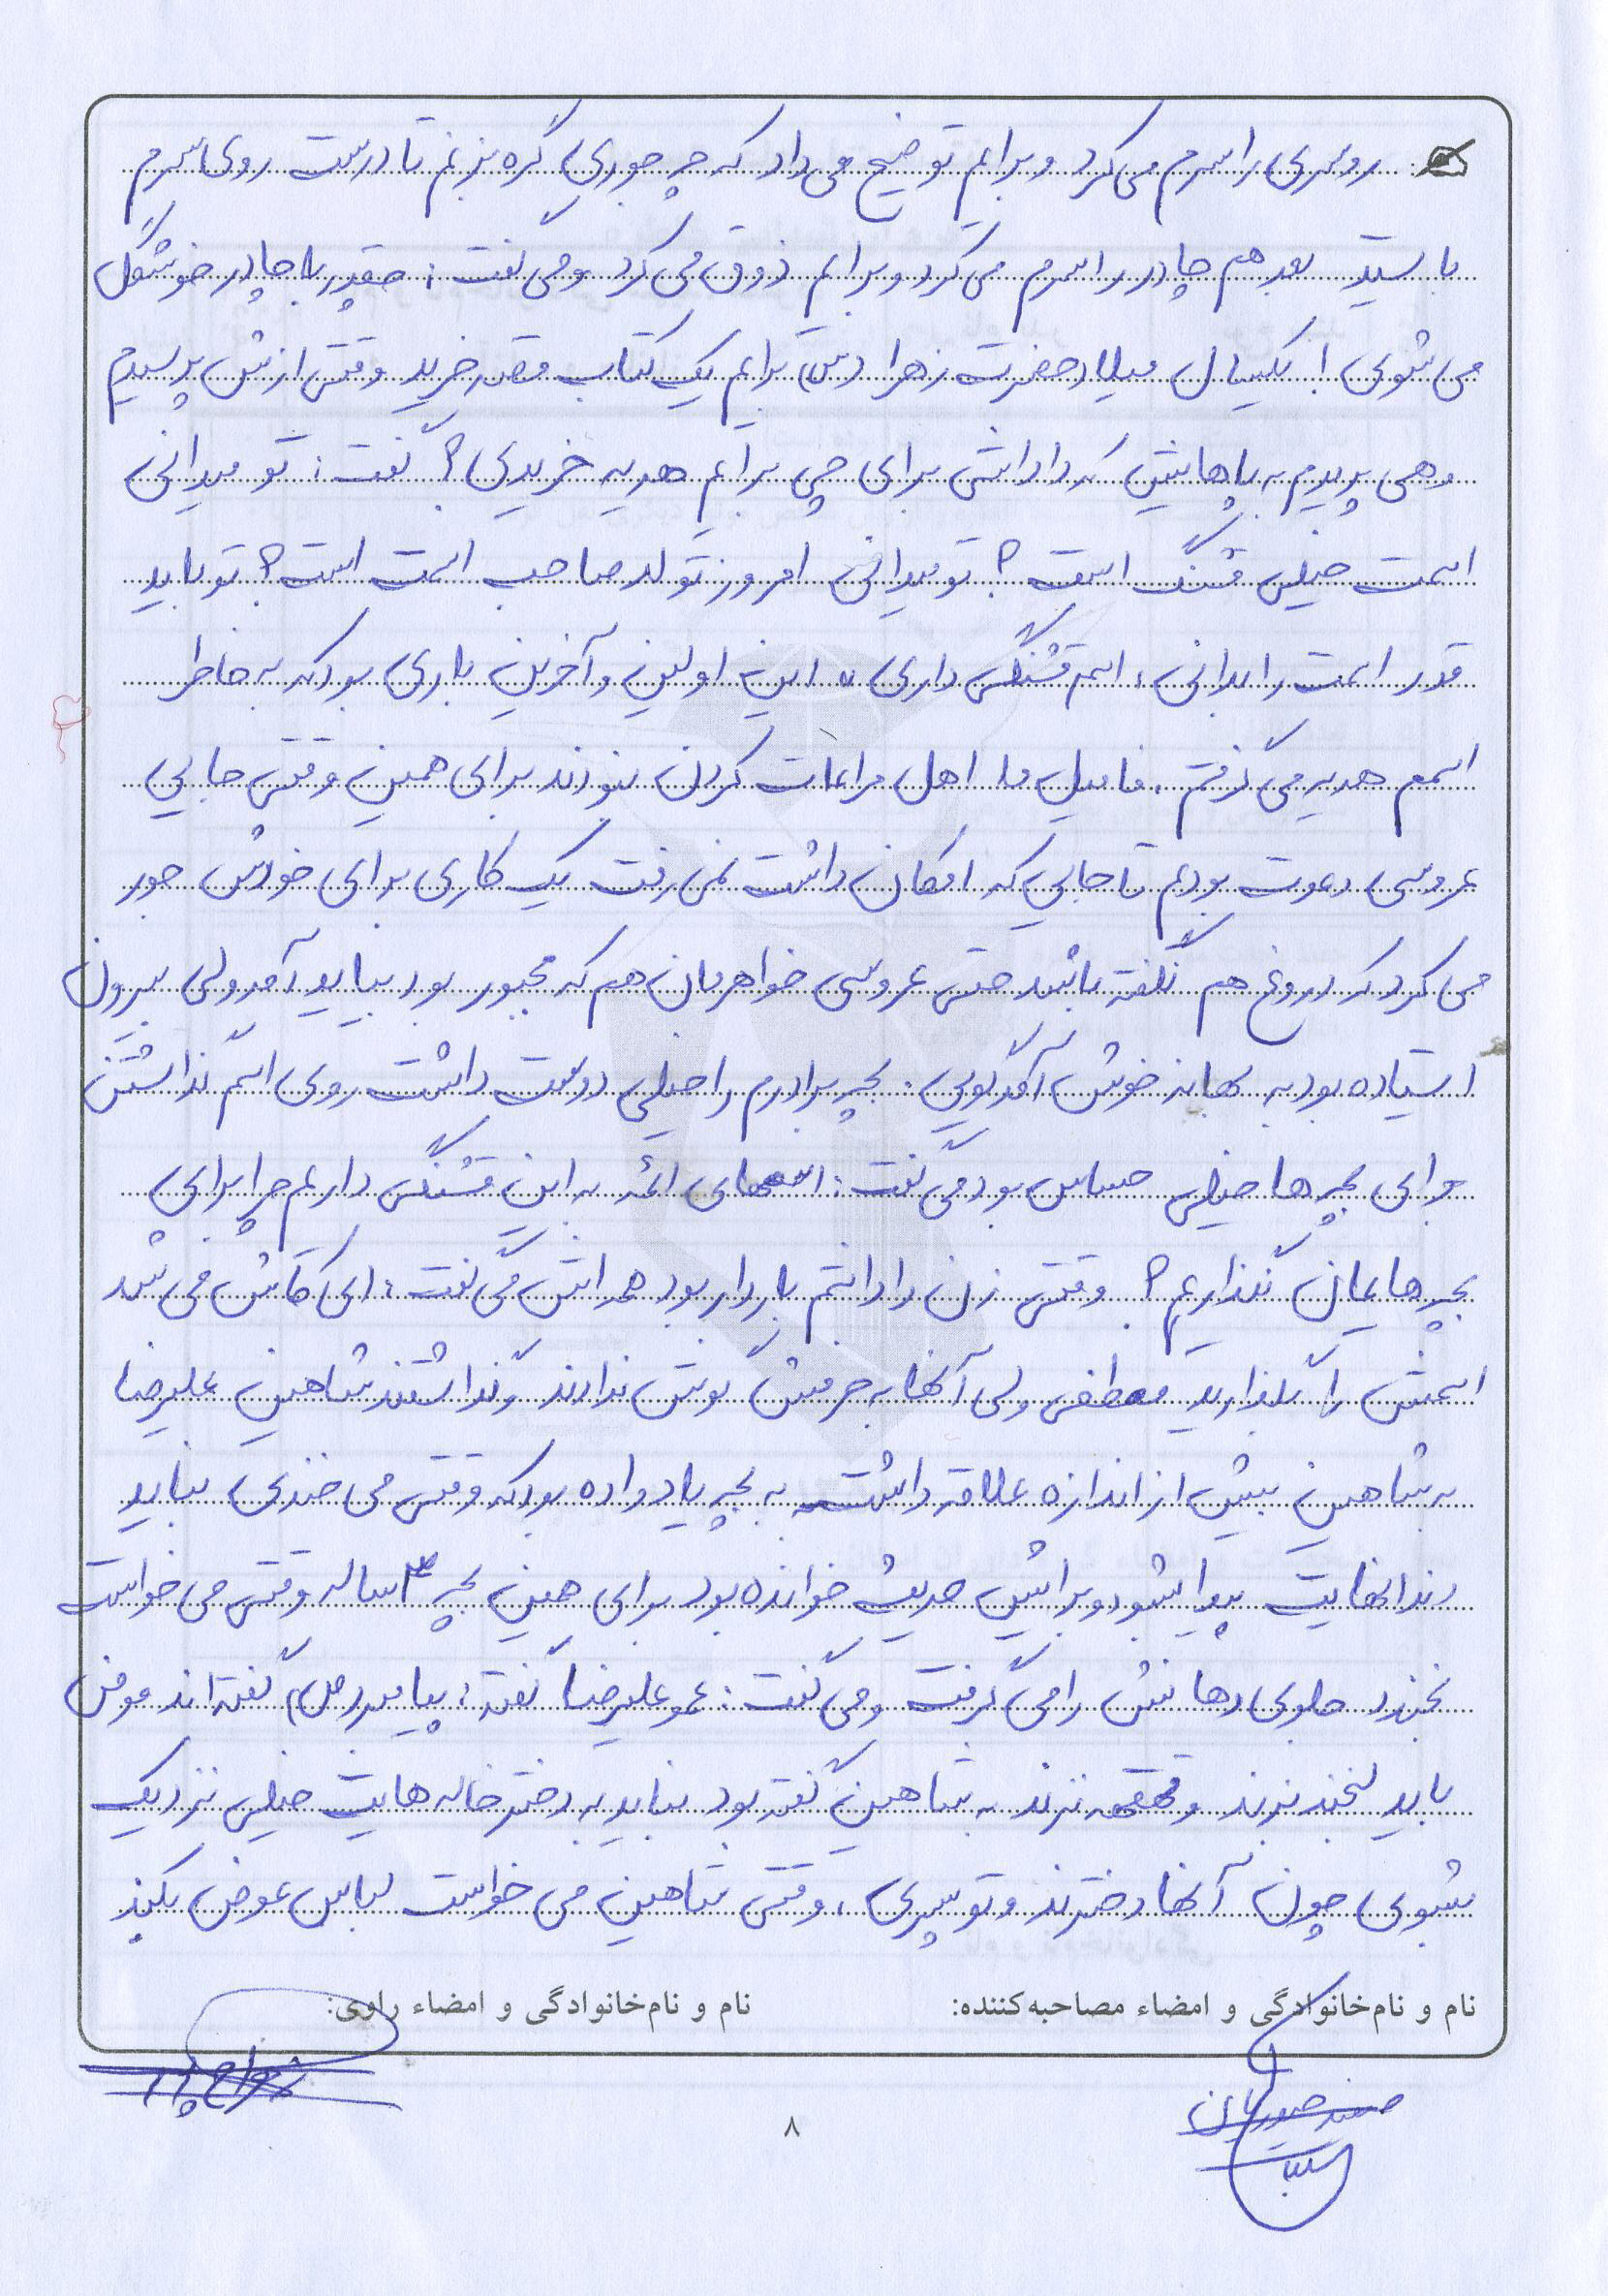 روسری را سرم می کرد و برایم توضیح می داد که چه جوری گره بزنم تا درست روی سرم
باستد بعد هم چادر را سرم می کرد و برایم ذوق می کرد و می گفت: چقدر با چادر خوشگل
می شوی! یکسال میلاد حضرت زهرا (س) برایم یک کتاب قصه خرید وقتی ازش پرسیدم
وهی پریدم به پاهایش که داداشی برای چی برایم هدیه خریدی؟ گفت: تو میدانی
اسمت خیلی قشنگ است؟ تو میدانی امروز تولد صاحب اسمت است؟ تو باید
قدر اسمت را بدانی، اسم قشنگی داری» این اولین و آخرین باری بود که به خاطر
اسمم هدیه می گرفتم. فامیل ما اهل مراعات کردن نبودند برای همین وقتی جایی
عروسی دعوت بودیم تا جایی که امکان داشت نمی رفت یک کاری برای خودش جور
می کرد که دروغ هم نگفته باشد حتی عروسی خواهرمان هم که مجبور بود بیاید آمد ولی بیرون
استیاده بود به بهانه خوش آمدگویی. بچه برادرم را خیلی دوست داشت روی اسم نذاشتن
برای بچه ها خیلی حساس بود می گفت: اسمهای ائمه به این قشنگی داریم چرا برای
بچه هایمان نگذاریم؟ وقتی زن داداشم باردار بود همه اش می گفت: ای کاش می شد
اسمش را بگذارید مصطفی ولی آنها به حرفش گوش ندادند و نذاشتند شاهین علیرضا
به شاهین بیش از اندازه علاقه داشت به بچه یاد داده بود که وقتی می خندی نباید
دندانهایت پیدا بشود و برایش حدیث خوانده بود برای همین بچه ۳ ساله وقتی می خواست
بخندد جلوی دهانش را می گرفت و می گفت: عمو علیرضا گفته: پیامبر (ص) گفته اند مومن
باید لبخند بزند و قهقهه نزند به شاهین گفته بود نباید به دختر خاله هایت خیلی نزدیک
بشوی چون آنها دخترند و تو پسری، وقتی شاهین می خواست لباس عوض بکند
نام و نام‌خانوادگی و امضاء مصاحبه‌کننده: نام و نام‌خانوادگی و امضاء راوی:
۸